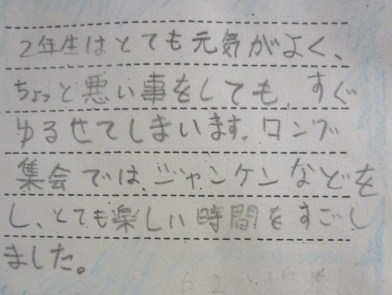 2年生はとても元気がよく、
ちょっと悪い事をしても、すぐ
ゆるせてしまいます。ロング
集会では、ジャンケンなどを
し、とても楽しい時間をすごし
ました。